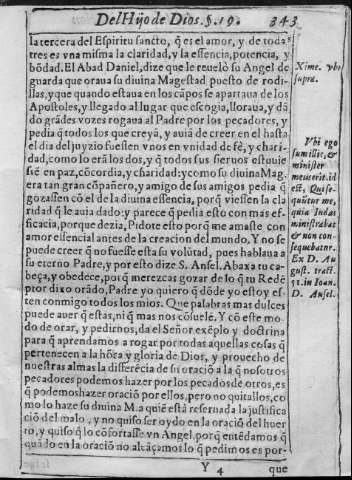 Del Hijo de Dios. §. 19. 343
la tercera del Espiritu sancto, q̃ es el amor, y de todas
tres es vna misma la claridad, y la essencia, potencia, y
bõdad. El Abad Daniel, dize que le reuelò su Angel de
guarda que oraua su diuina Magestad puesto de rodi-
llas, y que quando estaua en los cãpos se apartaua de los
Apostoles, y llegado al lugar que escogia, lloraua, y dã-
do grãdes vozes rogaua al Padre por los pecadores, y
pedia q̃ todos los que creyã, y auiã de creer en el hasta
el dia del juyzio fuessen vnos en vnidad de fê, y chari-
dad, como lo erã los dos, y q̃ todos sus sieruos estuuie
sẽ en paz, cõcordia, y charidad: y como su diuina Mag-
era tan gran cõpañero, y amigo de sus amigos pedia q̃
gozassen cõ el de la diuina essencia, porq̃ viessen la cla
ridad q̃ le auia dado: y parece q̃ pedia esto con mas ef-
ficacia, porque dezia, Pidote esto porq̃ me amaste con
amor essencial antes de la creacion del mundo. Y no se
puede creer q̃ no fuesse esta su volũtad, pues hablaua a
su eterno Padre, y por esto dize S. Ansel. Abaxa tu ca-
beça, y obedece, por q̃ merezcas gozar de lo q̃ tu Redẽ
ptor dixo orãdo, Padre yo quiero q̃ dõde yo estoy es-
ten conmigo todos los mios. Que palabras mas dulces
puede auer q̃ estas, ni q̃ mas nos cõsuelẽ. Y cõ este mo-
do de orar, y pedirnos, da el Señor exẽplo y doctrina
para q̃ aprendamos a rogar por todas aquellas cosas q̃
pertenecen a la hõra y gloria de Dios, y prouecho de
nuestras almas la differẽcia de su oraciõ a la q̃ nosotros
pecadores podemos hazer por los pecados de otros, es
q̃ podemos hazer oraciõ por ellos, pero no quitallos, co
mo lo haze su diuina M. a quiẽ està reseruada la justifica
ciõ del malo, y no quiso ser oydo en la oraciõ del huer
to, y quiso q̃ lo cõfortasse vn Angel, porq̃ entẽdamos q̃
quãdo en la oraciõ no alcãçamos lo q̃ pedimos es por-
Y 4 que
Xime. vbi
supra.
Vbi ego
sum illic, &
minister
meus erit. id
est, Qui se-
quũtur me,
quia Iudas
ministrabat
& non con-
sequebatur.
Ex D. Au
gust. tract.
51. in Ioan.
D. Ansel.